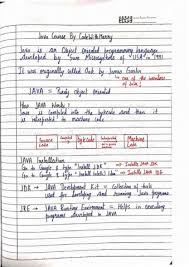 Java Course By CodeWithHarry
Java is an Object Oriented programming language
developed by Sun Microsystems of "USA" in "1991
It was originally called Oak by James Goslin
one of the
JAVA = Purely object oriented
How JAVA Works?
Java is compiled into the bytecode and then it
is interpreted to machine code
Source Code
Bytecode
Machine Code
JAVA Installation
Go to Google & type "Install JDK" → Installs JAVA JDK
Go to Google & type "Install
JDK → JAVA Development Kit = Collection of tools
used for developing and running Java programs
JRE → JAVA Runtime Environment = Helps in executing
programs developed in JAVA